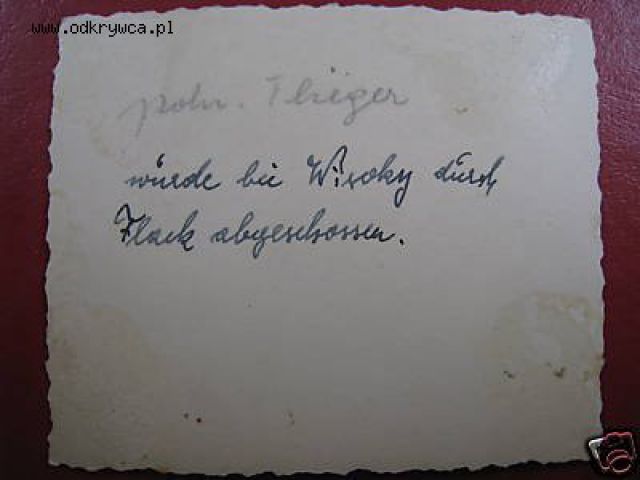 www.odkrywca.pl
poln. Flieger
wurde bei Wisoky durch
Flack abgeschossen.